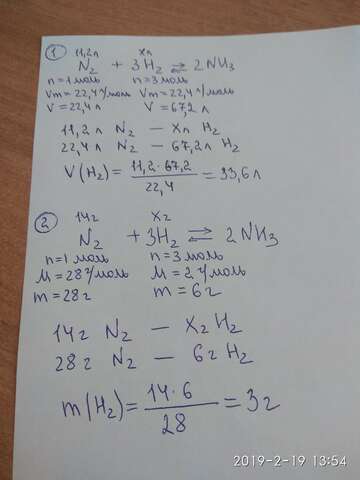 1
11,2л хл
N₂ + 3H₂ ⇄ 2NH₃
n=1моль n=3моль
Vm=22,4л/моль Vm=22,4л/моль
V=22,4л V=67,2л
11,2л N₂ — Xл H₂
22,4л N₂ — 67,2л H₂
V(H₂)= 11,2·67,2 / 22,4 = 33,6л
2
14г Xг
N₂ + 3H₂ ⇄ 2NH₃
n=1моль n=3моль
M=28г/моль M=2г/моль
m=28г m=6г
14г N₂ — Xг H₂
28г N₂ — 6г H₂
m(H₂)= 14·6 / 28 = 3г
2019-2-19 13:54